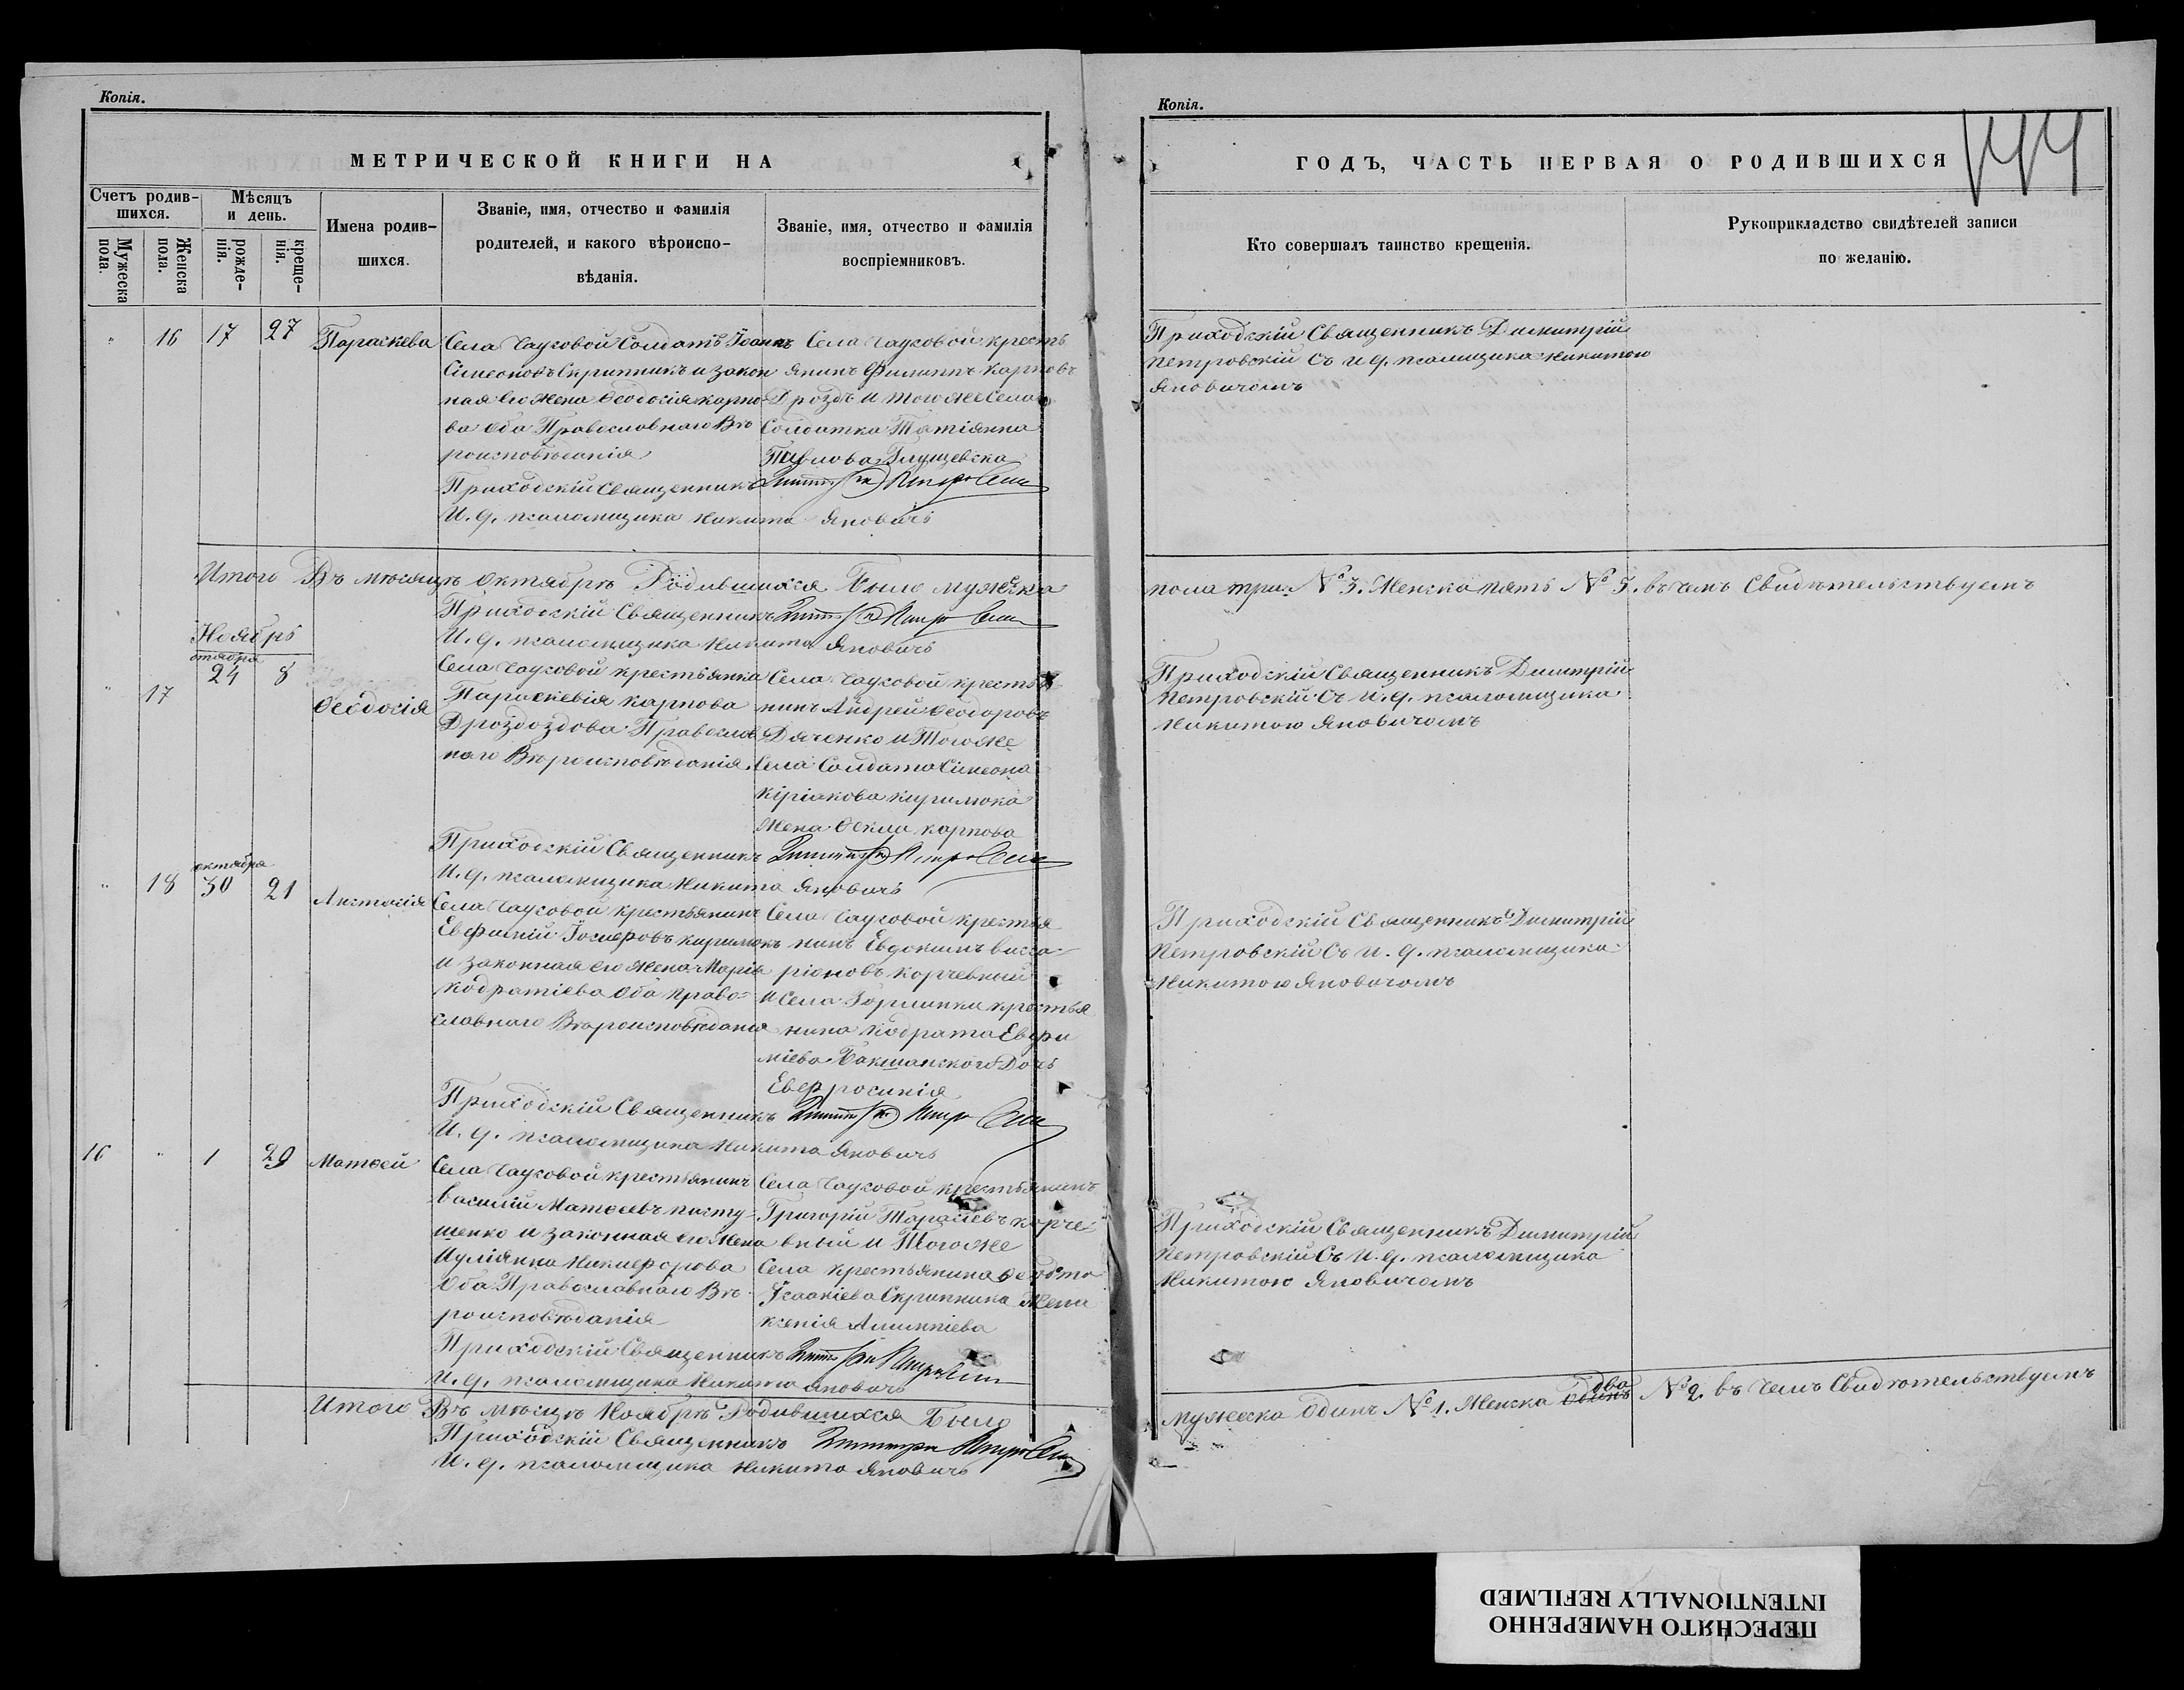 Копія.
МЕТРИЧЕСКОЙ КНИГИ НА
Счетъ родив-
шихся.
Мѣсяцъ
и день.
Мужеска
пола.
Женска
пола.
рожде-
нія.
креще-
нія.
Имена родив-
шихся.
Званіе, имя, отчество и фамилія
родителей, и какого вѣроиспо-
вѣданія.
Званіе, имя, отчество и фамилія
воспріемниковъ.
" 16 17 27 Параскева
Села Чаусовой Солдатъ Іоаннъ
Симеоновъ Скрипникъ и закон
ная его жена Феодосія Карпо-
ва оба Православнаго Вѣ
роисповѣданія
Села Чаусовой кресть
янинъ Филиппъ Карповъ
Дроздъ и того же Села
Солдатка Татіянна
Павлова
Приходскій Священникъ
И. д. псаломщика Никита Яновичъ
Итого Въ мѣсяцѣ Октябрѣ Родившихся Было мужеска
Приходскій Священникъ
И. д. псаломщика Никита Яновичъ
Ноябрь
октября
" 17 24 8 Феодосія
Села Чаусовой крестьянка
Параскевія Карпова
Дроздоздова Православ
наго Вѣроисповѣданія.
Села Чаусовой крестья
нинъ Андрей Феодоровъ
Дяченко и Того же
Села Солдата Симеона
Киріакова Кирилюка
Жена Фекла Карпова
Приходскій Священникъ
И. д. псаломщика Никита Яновичъ
октября
" 18 30 21 Анстасія
Села Чаусовой крестьянинъ
Евфимій Іосифовъ Кирилюкъ
и законная его жена Марія
Кодратіева Оба Право-
славнаго Вѣроисповѣданія
Села Чаусовой крестья
нинъ Евдокимъ Висса-
ріоновъ Корчевный
и Села крестья
нина Кодрата Евфи
міева Бакшанского Дочь
Евфросинія
Приходскій Священникъ
И. д. псаломщика Никита Яновичъ
16 " 1 29 Матфей
Села Чаусовой крестьянинъ
Василій Матфеевъ Пасту-
шенко и законная его Жена
Иуліянна Никифорова
Оба Православнаго Вѣ-
роисповѣданія
Села Чаусовой крестьянинъ
Григорій Тарасіевъ Корче-
вный и Того же
Села крестьянина
Исаакіева Скрипника Жена
Ксенія Алимпіева
Приходскій Священникъ
И. д. псаломщика Никита Яновичъ
Итого Въ мѣсяцѣ Ноябрѣ Родившихся Было
Приходскій Священникъ
И. д. псаломщика Никита Яновичъ
Копія.
ГОДЪ, ЧАСТЬ ПЕРВАЯ О РОДИВШИХСЯ
Кто совершалъ таинство крещенія.
Рукоприкладство свидѣтелей записи
по желанію.
Приходскій Священникъ Димитрій
Петровскій Съ и д. псаломщика Никитою
Яновичомъ
пола три. № 3. Женска пять № 5. въ чемъ Свидѣтельствуемъ
Приходскій Священникъ Димитрій
Петровскій Съ И. д. псаломщика
Никитою Яновичомъ
Приходскій Священникъ Димитрій
Петровскій Съ И. д. псаломщика
Никитою Яновичомъ
Приходскій Священникъ Димитрій
Петровскій Съ И. д. псаломщика
Никитою Яновичомъ
два
мужеска Одинъ № 1. Женска одинъ № 2. въ чемъ Свидѣтельствуемъ
ПЕРЕСНЯТО НАМЕРЕННО
INTENTIONALLY REFILMED